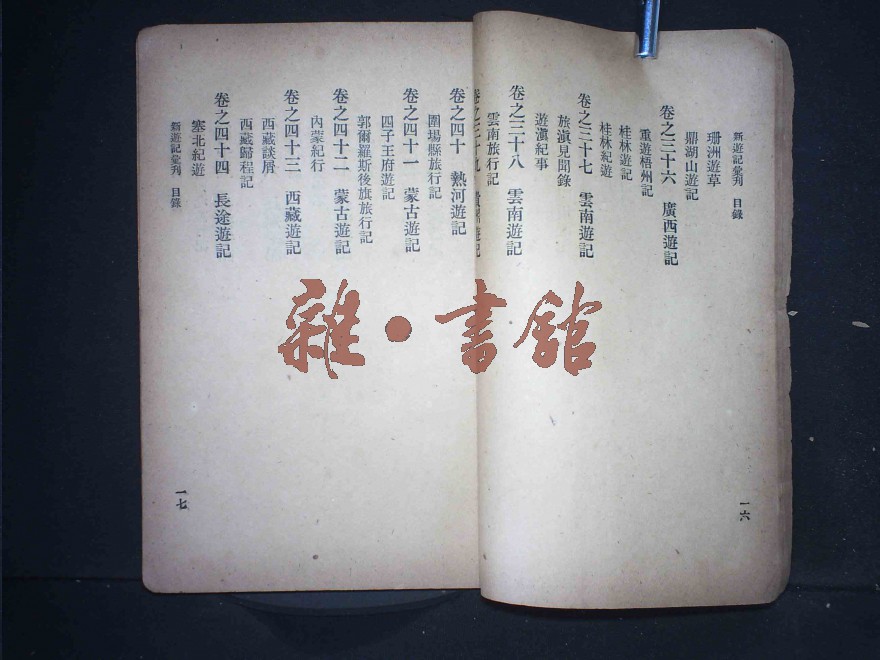 新遊記彙刊 目錄
珊洲遊草
鼎湖山遊記
卷之三十六 廣西遊記
重遊梧州記
桂林遊記
桂林紀遊
卷之三十七 雲南遊記
旅滇見聞錄
遊滇紀事
卷之三十八 雲南遊記
雲南旅行記
一六
卷之三十九 貴州遊記
卷之四十 熱河遊記
圍場縣旅行記
卷之四十一 蒙古遊記
四子王府遊記
郭爾羅斯後旗旅行記
卷之四十二 蒙古遊記
內蒙紀行
卷之四十三 西藏遊記
西藏談屑
西藏歸程記
卷之四十四 長途遊記
塞北紀遊
新遊記彙刊 目錄
一七
雜·書館